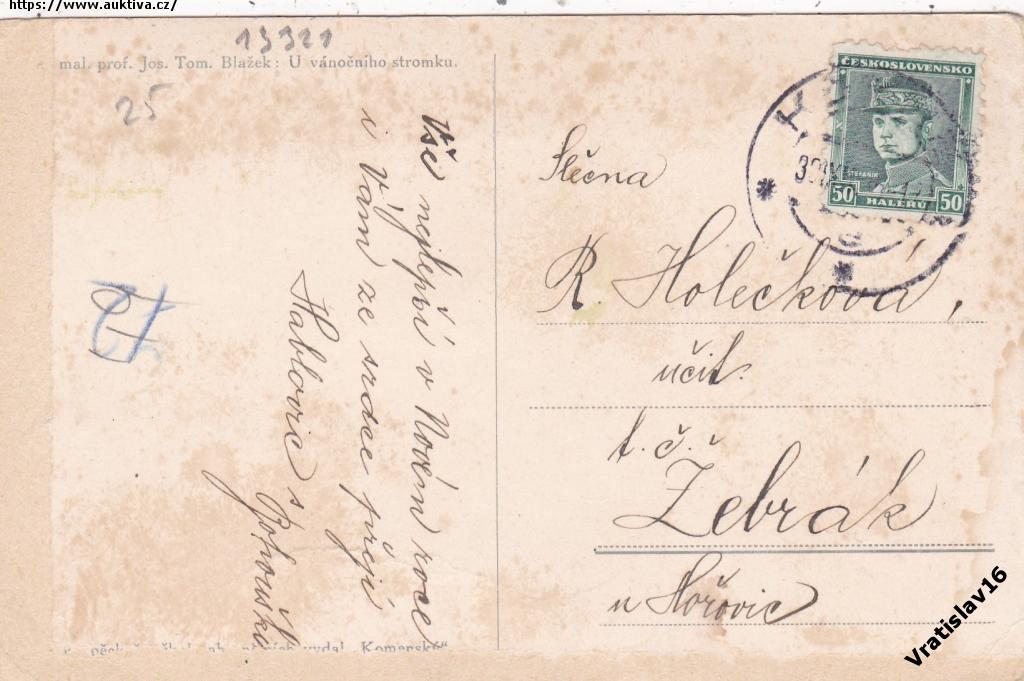 https://www.auktiva.cz/
13321
mal. prof. Jos. Tom. Blažek: U vánočního stromku.
25
Vše nejlepší v Novém roce
i Vám ze srdce přejí
Hablovic s
Bohouška
ČESKOSLOVENSKO
ŠTEFÁNIK
50 HALÉŘŮ 50
Slečna
R Holečková,
učit.
t. č.
Žebrák
u Hořovic
vydal „Komenský“
Vratislav16